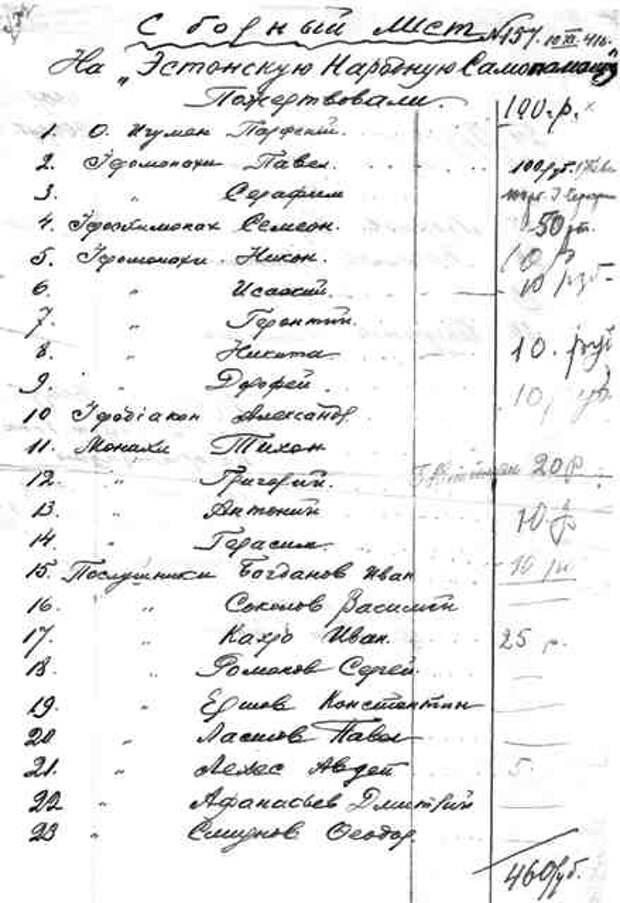 Сборный лист №157. 10 XI. 41г.
На "Эстонскую Народную Самопомощь"
Пожертвовали.
1. О. Игумен Парфений. 100. р.
2. Иеромонахи Павел. 100 руб.
3. " Серафим
4. Иеросхимонах Симеон. 50 р.
5. Иеромонахи Никон. 10 р
6. " Исаакий. 10 руб.
7. " Геронтий.
8. " Никита 10. руб
9. " Дорофей. 10 руб
10 Иеродиакон Александр.
11. Монахи Тихон
12. " Григорий. 20 р
13. " Антоний 10 р
14 " Герасим.
15. Послушники Богданов Иван 10 ру
16. " Соколов Василий
17. " Кахро Иван. 25 р.
18. " Романов Сергей.
19. " Ершов Константин
20 " Павел
21. " Авдей 5.
22 " Афанасьев Дмитрий
23 " Смирнов Феодор.
460 руб.